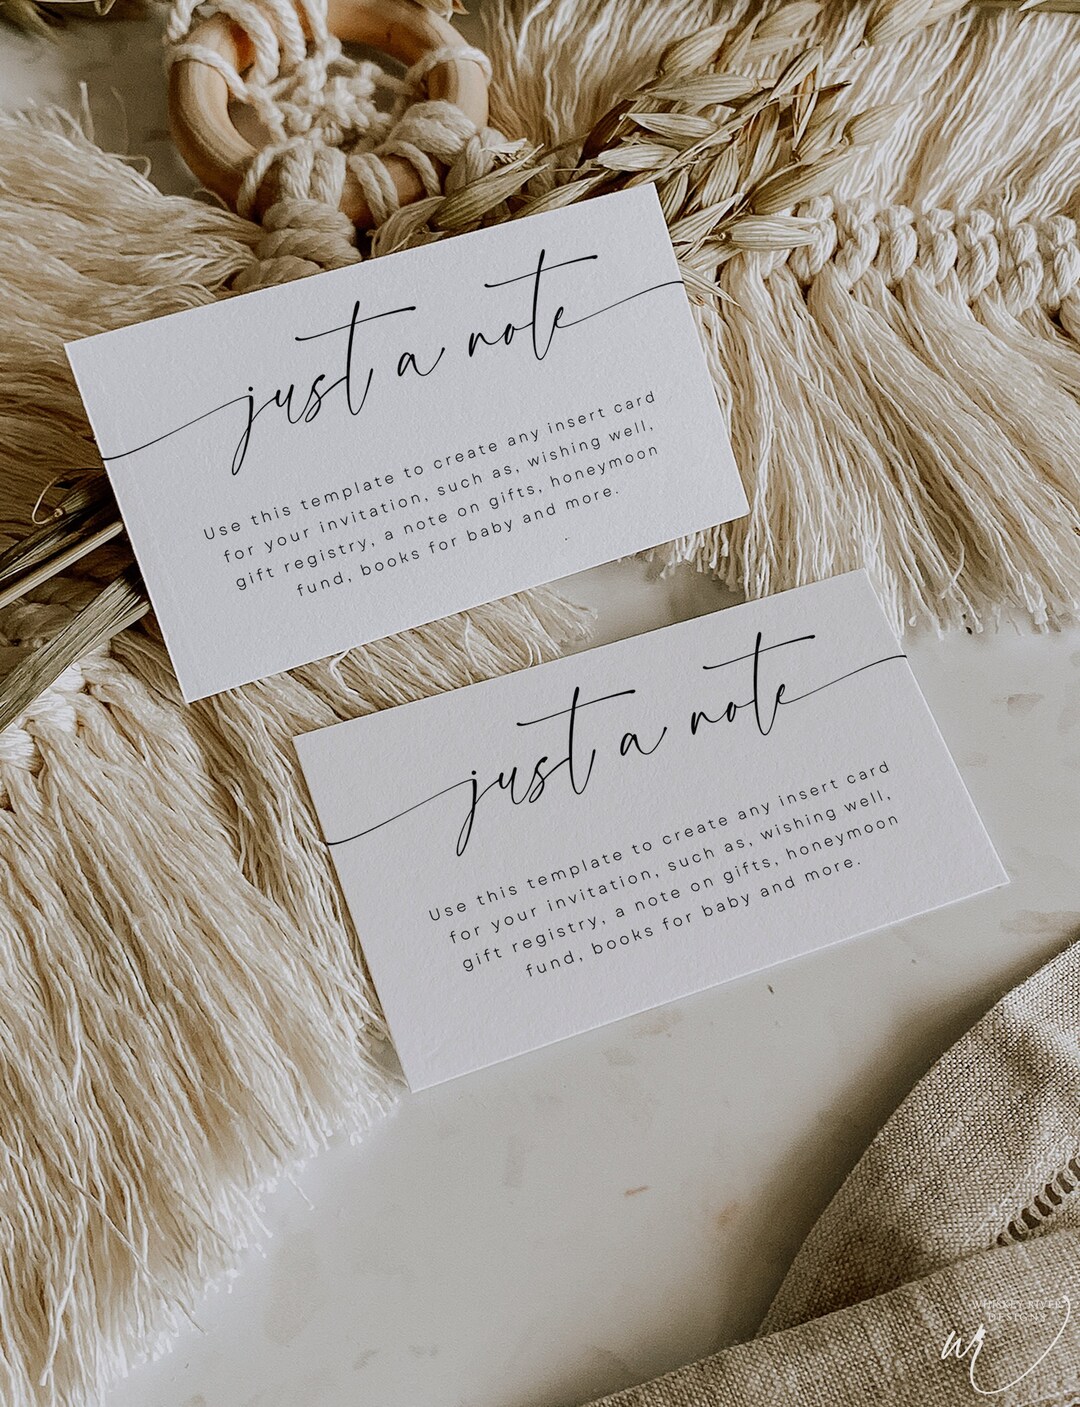 just a note
Use this template to create any insert card
for your invitation, such as, wishing well,
gift registry, a note on gifts, honeymoon
fund, books for baby and more.
just a note
Use this template to create any insert card
for your invitation, such as, wishing well,
gift registry, a note on gifts, honeymoon
fund, books for baby and more.
wr